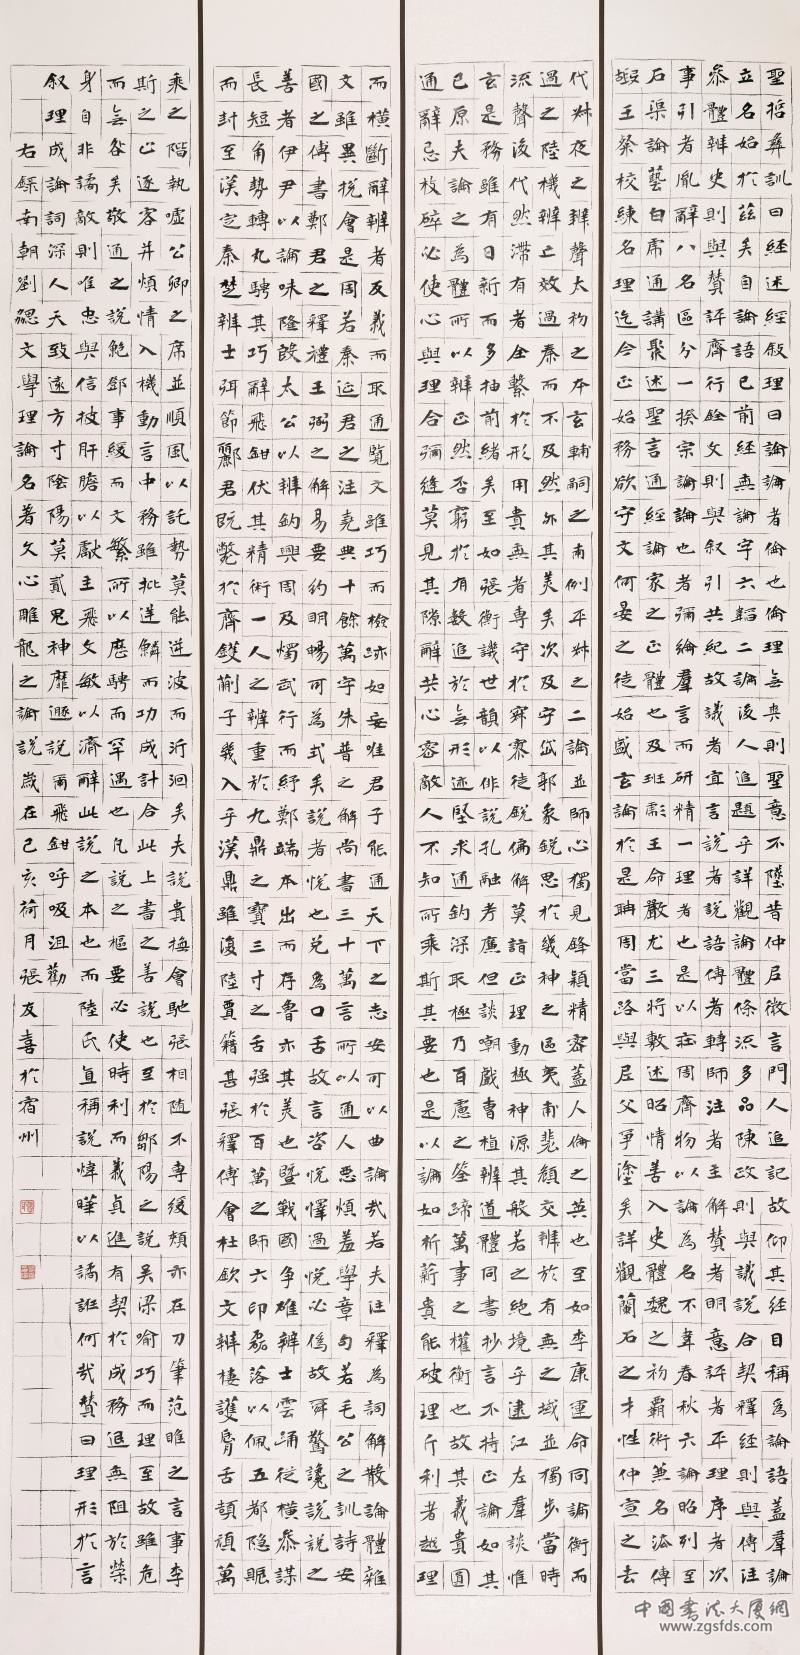 聖哲彝訓曰經述經叙理曰論論者倫也倫理無爽則聖意不墜昔仲尼微言門人追記故仰其經目稱為論語蓋羣論
立名始於茲矣自論語已前經無論字六韜二論後人追題乎詳觀論體條流多品陳政則與議說合契釋經則與傳注
參體辨史則與贊評齊行銓文則與叙引共紀故議者宜言說者說語傳者轉師注者主解贊者明意評者平理序者次
事引者胤辭八名區分一揆宗論論也者彌綸羣言而研精一理者也是以莊周齊物以論為名不韋春秋六論昭列至
石渠論藝白虎通講聚述聖言通經論家之正體也及班彪王命嚴尤三將敷述昭情善入史體魏之初霸術兼名法傅
嘏王粲校練名理迄今正始務欲守文何晏之徒始盛玄論於是聃周當路與尼父爭塗矣詳觀蘭石之才性仲宣之去
代叔夜之辨聲太初之本玄輔嗣之兩例平叔之二論並師心獨見鋒穎精密蓋人倫之英也至如李康運命同論衡而
過之陸機辨亡效過秦而不及然亦其美矣次及宋岱郭象銳思於幾神之區夷甫裴頠交辨於有無之域並獨步當時
流聲後代然滯有者全繫於形用貴無者專守於寂寥徒銳偏解莫詣正理動極神源其般若之絕境乎逮江左羣談惟
玄是務雖有日新而多抽前緒矣至如張衡譏世韻似俳說孔融孝廉但談嘲戲曹植辨道體同書抄言不持正論如其
已原夫論之為體所以辨正然否窮於有數追於無形迹堅求通鈎深取極乃百慮之筌蹄萬事之權衡也故其義貴圓
通辭忌枝碎必使心與理合彌縫莫見其隙辭共心密敵人不知所乘斯其要也是以論如析薪貴能破理斤利者越理
而橫斷辭辨者反義而取通覽文雖巧而檢跡如妄唯君子能通天下之志安可以曲論哉若夫注釋為詞解散論體雜
文雖異總會是同若秦延君之注堯典十餘萬字朱普之解尚書三十萬言所以通人惡煩羞學章句若毛公之訓詩安
國之傳書鄭君之釋禮王弼之解易要約明暢可為式矣說者悅也兌為口舌故言咨悅懌過悅必偽故舜驚讒說說之
善者伊尹以論味隆殷太公以辨釣興周及燭武行而紓鄭端木出而存魯亦其美也暨戰國爭雄辨士雲踊從橫參謀
長短角勢轉丸騁其巧辭飛鉗伏其精術一人之辨重於九鼎之寶三寸之舌强於百萬之師六印磊落以佩五都隱賑
而封至漢定秦楚辨士弭節酈君既斃於齊鑊蒯子幾入乎漢鼎雖復陸賈籍甚張釋傅會杜欽文辨樓護脣舌頡頏萬
乘之階執噓公卿之席並順風以託勢莫能逆波而泝洄矣夫說貴撫會弛張相隨不專緩頰亦在刀筆范雎之言事李
斯之止逐客并煩情入機動言中務雖批逆鱗而功成計合此上書之善說也至於鄒陽之說吳梁喻巧而理至故雖危
而無咎矣敬通之說鮑鄧事緩而文繁所以歷騁而罕遇也凡說之樞要必使時利而義貞進有契於成務退無阻於榮
身自非譎敵則唯忠與信披肝膽以獻主飛文敏以濟辭此說之本也而陸氏直稱說煒曄以譎誑何哉贊曰理形於言
叙理成論詞深人天致遠方寸陰陽莫貳鬼神靡遯說爾飛鉗呼吸沮勸
右錄南朝劉勰文學理論名著文心雕龍之論說歲在己亥荷月張友喜於宿州
中國書法大廈網
www.zgsfds.com